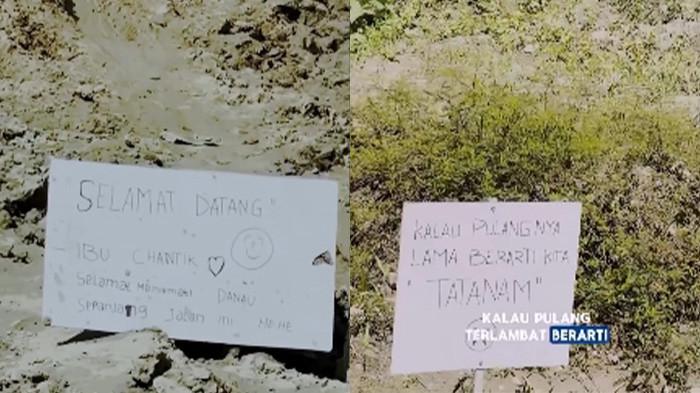 SELAMAT DATANG"
IBU CHANTIK
Selamat Menikmati DANAU
Sepanjang Jalan ini HEHE
KALAU PULANGNYA
LAMA BERARTI KITA
"TATANAM"
KALAU PULANG
TERLAMBAT BERARTI